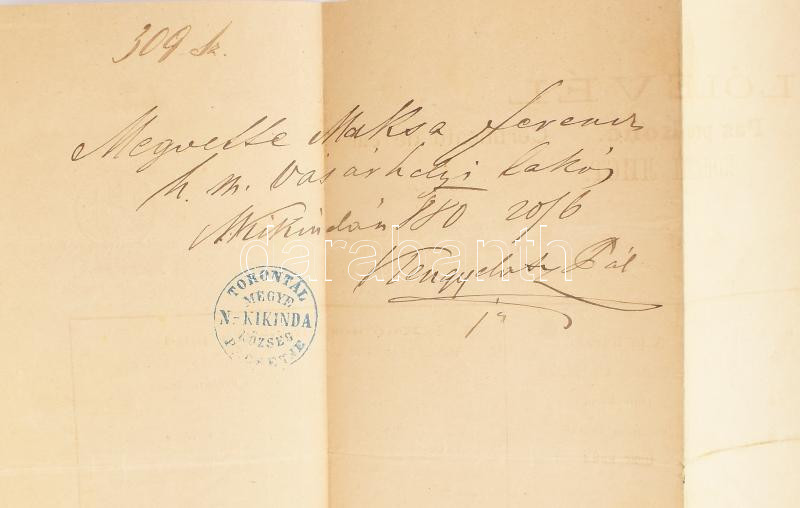 309 sz.
Megvette Maksa Ferencz
h. m. vásárhelyi lakós
NKikindán 880 20/6
Pál
TORONTÁL
MEGYE
N.-KIKINDA
KÖZSÉG
PECSÉTJE
darabanth
LÓLEVEL